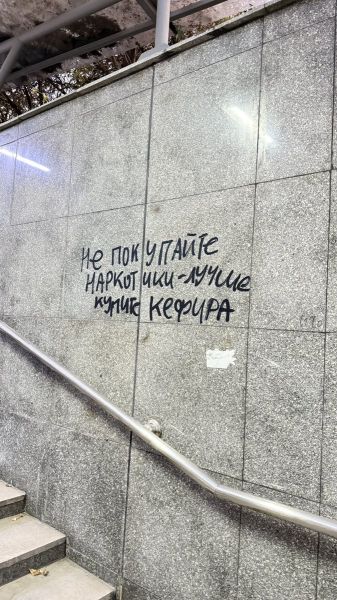 Не покупайте
наркотики-лучше
купите кефира